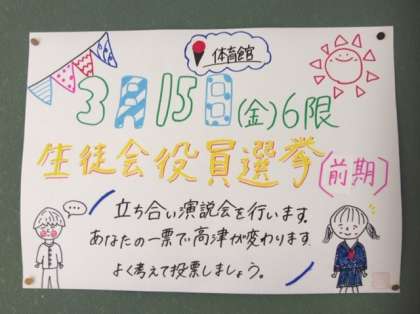 体育館
3月15日(金)6限
生徒会役員選挙(前期)
...
立ち合い演説会を行います。
あなたの一票で高津が変わります
よく考えて投票しましょう。